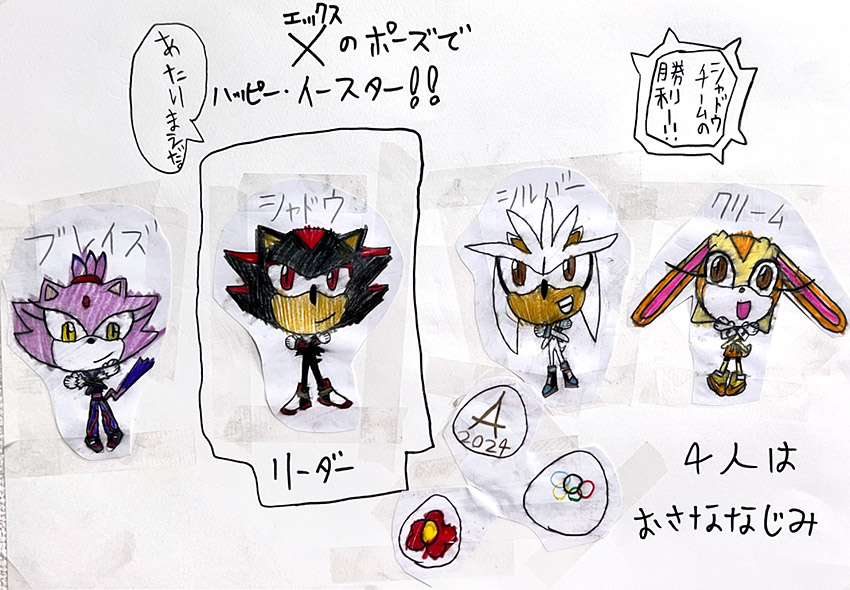 エックス
Xのポーズで
ハッピー・イースター!!
あたりまえだ。
シャドウ
チームの
勝利ー!!
ブレイズ
シャドウ
シルバー
クリーム
リーダー
A
2024
4人は
おさななじみ